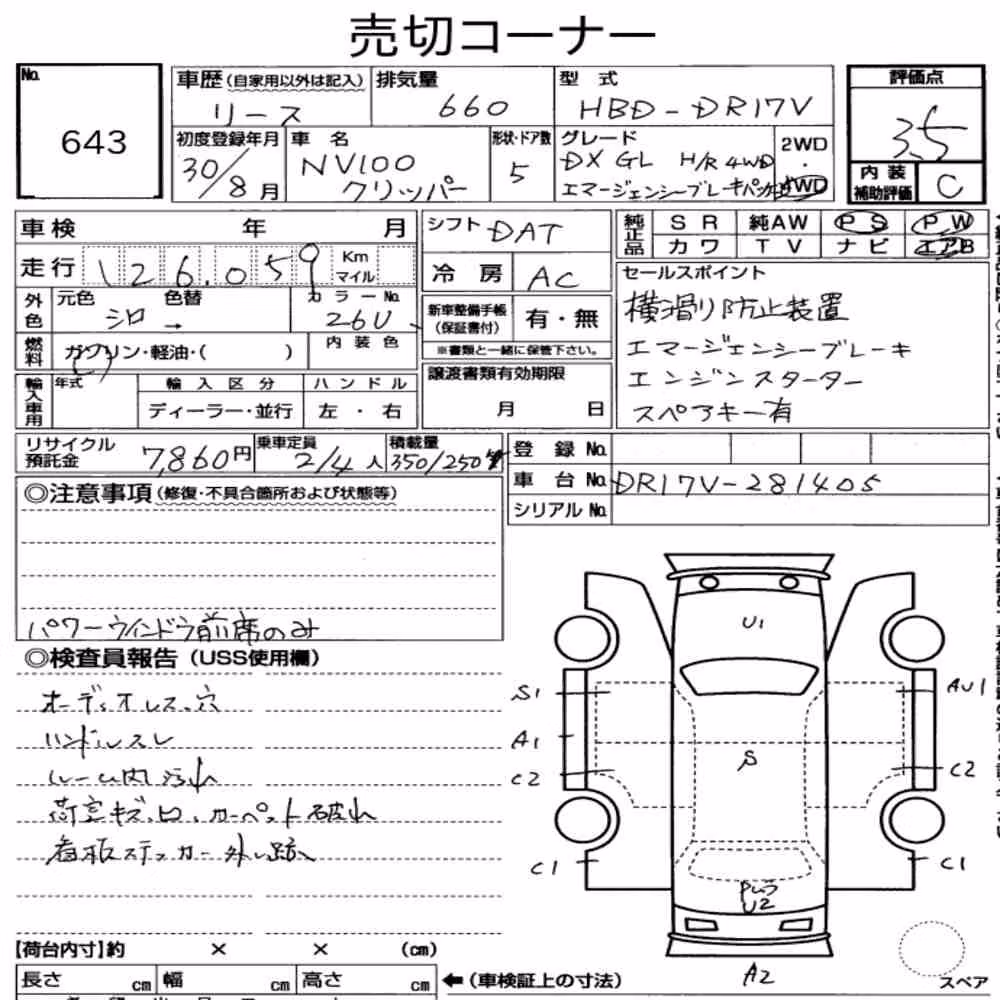 売切コーナー
No.
643
車歴 (自家用以外は記入)
リース
排気量
660
型 式
HBD-DR17V
評価点
3.5
初度登録年月
30/8月
車 名
NV100
クリッパー
形状・ドア数
5
グレード
DX GL H/R 4WD
エマージェンシーブレーキパッケ
2WD
・
4WD
内 装
補助評価
C
車検 年 月
シフト DAT
純正品
SR 純AW PS PW
カワ TV ナビ エアB
走行 126.059 Km
マイル
冷 房 AC
セールスポイント
横滑り防止装置
エマージェンシーブレーキ
エンジンスターター
スペアキー有
外色
元色 色替
シロ →
カラーNo.
26U
新車整備手帳
(保証書付)
有・無
※書類と一緒に保管下さい。
燃料
ガソリン・軽油・( )
内 装 色
輸入車用
年式
輸 入 区 分
ディーラー・並行
ハ ン ド ル
左 ・ 右
譲渡書類有効期限
月 日
リサイクル
預託金
7,860円
乗車定員
2/4人
積載量
350/250
登 録 No.
車 台 No. DR17V-281405
シリアル No.
◎注意事項(修復・不具合箇所および状態等)
パワーウインドウ前席のみ
◎検査員報告(USS使用欄)
オーディオレス、穴
ハンドルスレ
ルーム内汚れ
荷室キズ、凹、カーペット破れ
看板ステッカー外し跡
U1
S1
AU1
A1
S
C2
C2
C1
C1
U2
A2
【荷台内寸】約 × × (cm)
長さ cm 幅 cm 高さ cm
←(車検証上の寸法)
スペア